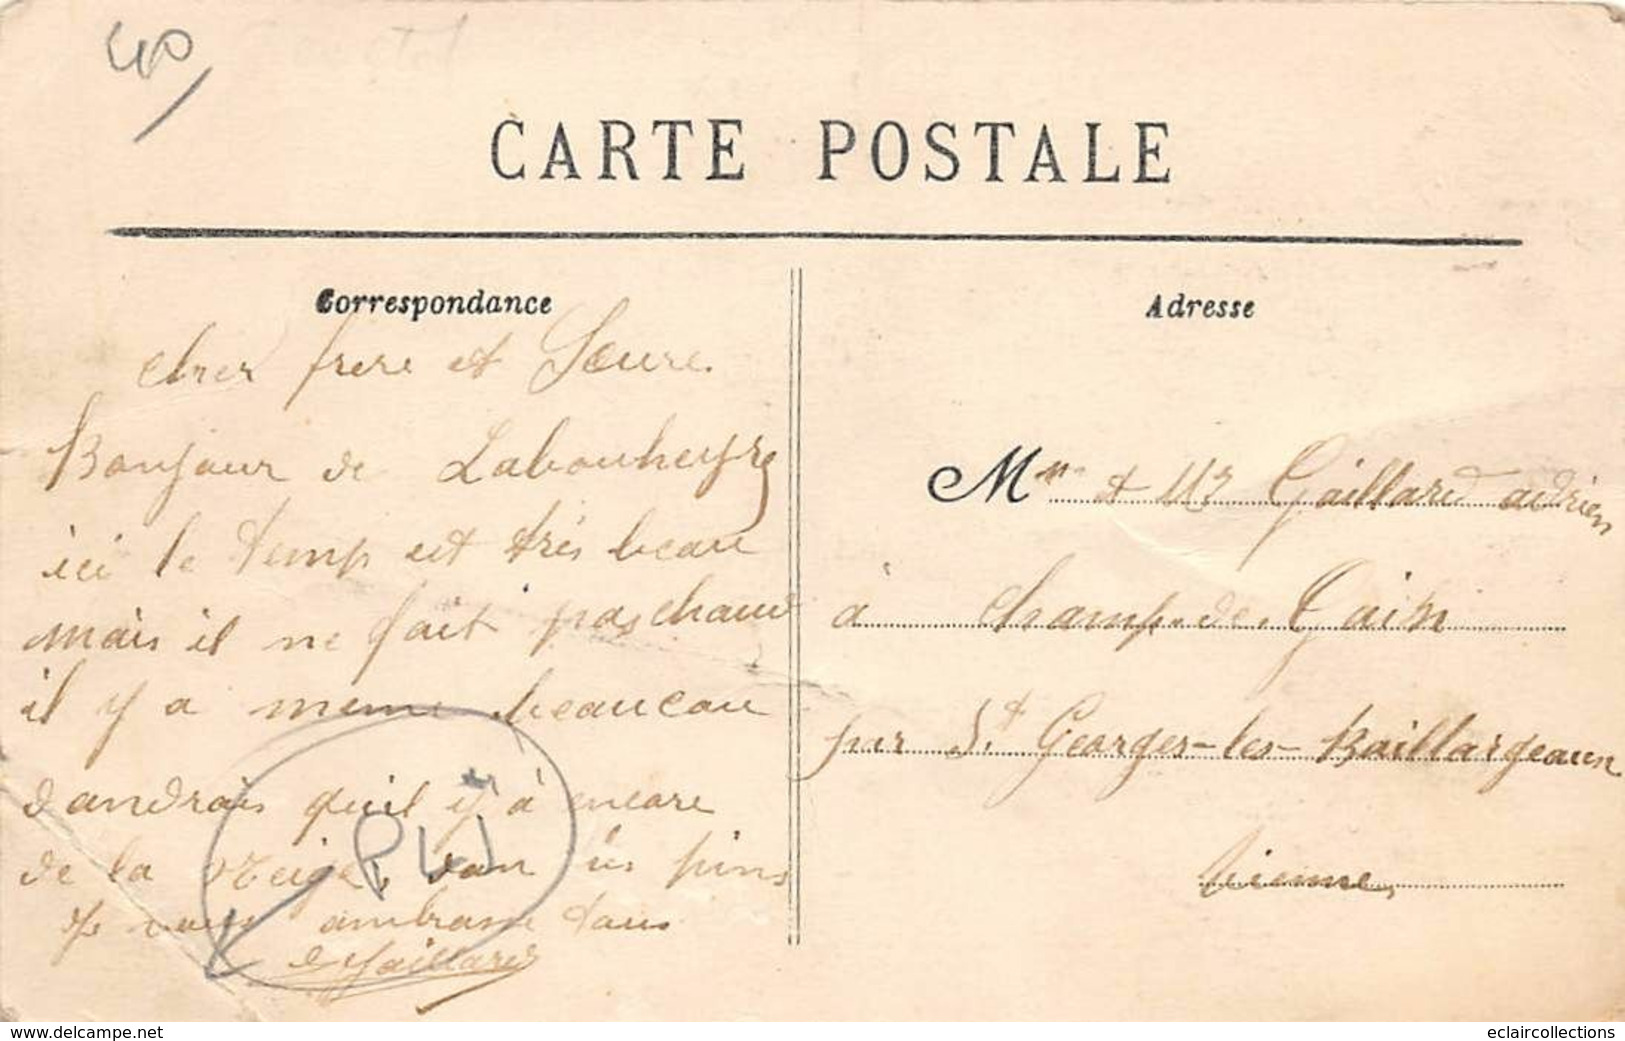 40
CARTE POSTALE
Correspondance
Adresse
cher frere et Soeure.
Bonjour de Labouheyre
ici le temp est très beau
mais il ne fait pas chaud
il y a meme beaucou
d'andrais qu'il y'à encore
de la neige, dan les pins
Je vous ambrasse tous
Gaillard
PLI
Mr et Me Gaillard adrien
à champ-de-Gain
par St Georges-les-Baillargeaux
Vienne
www.delcampe.net
eclaircollections